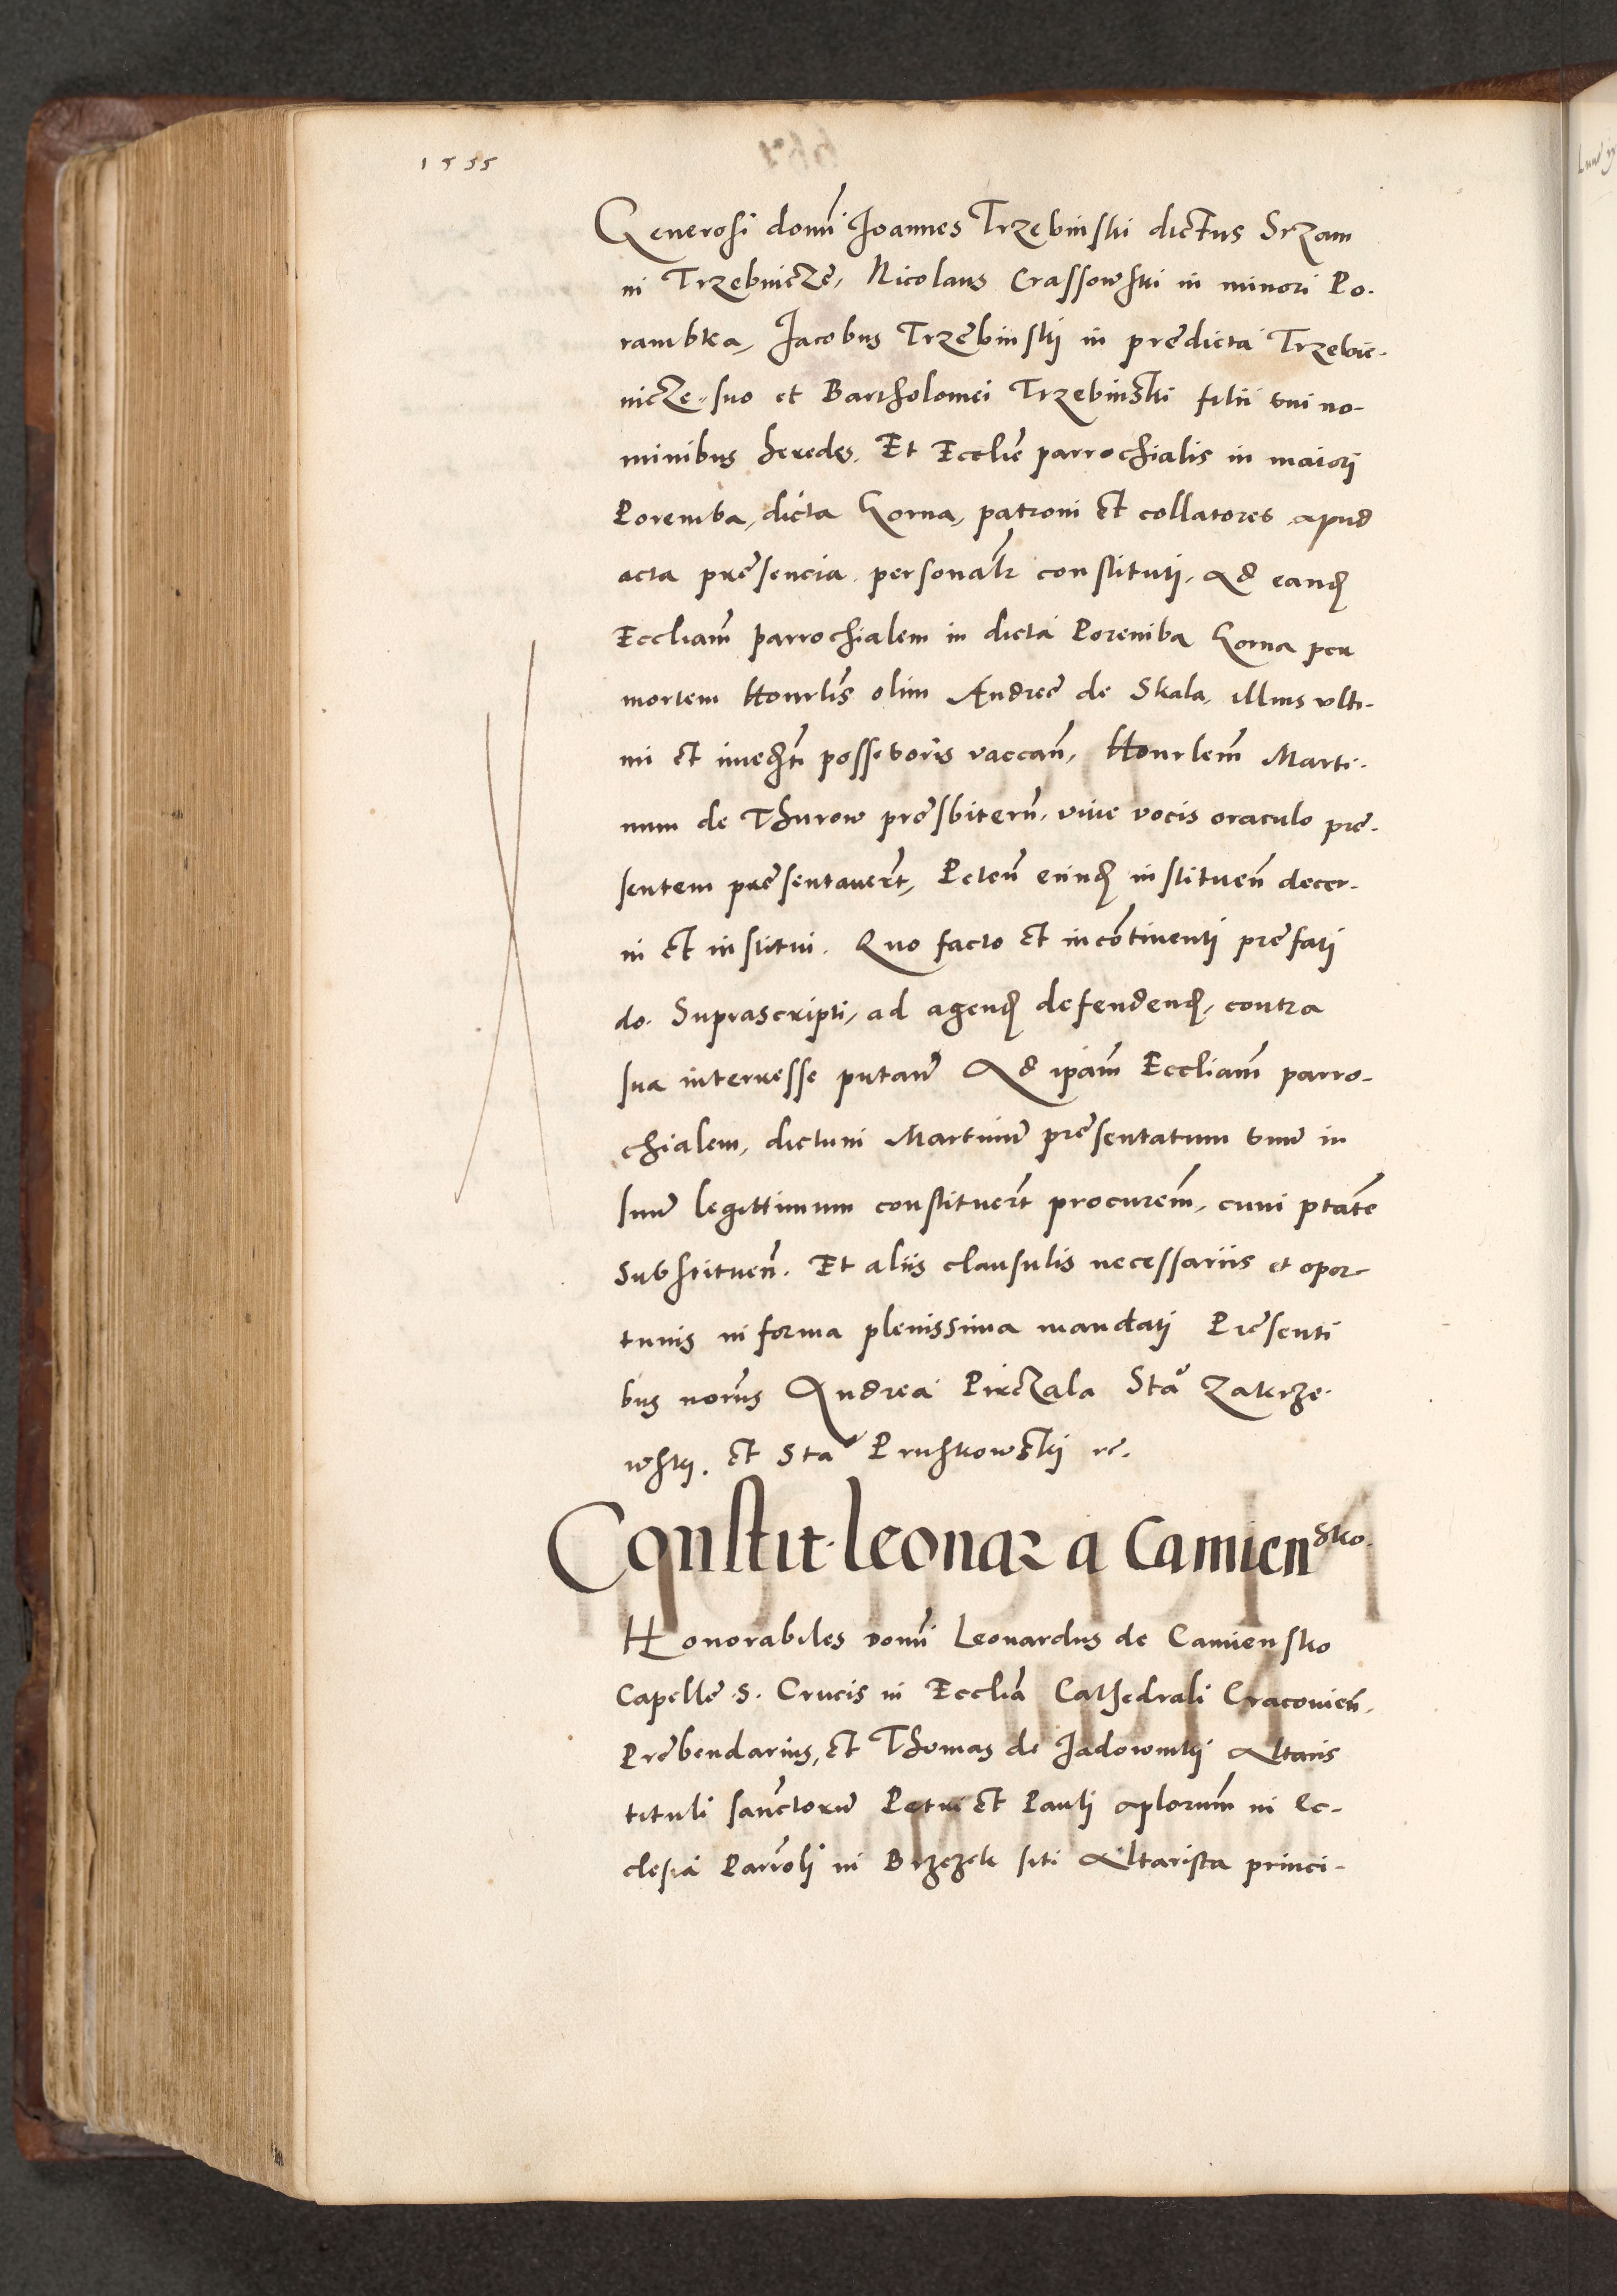 1555
Generosi domī Joannes Trzebinski dictus Srzam
in Trzebnicze, Nicolaus Crassowski in minori Po-
rambka, Jacobus Trzebinskj in predicta Trzebie-
nicze suo et Bartholomei Trzebinski filii sui no-
minibus heredes. Et Ecclīe parrochialis in maiorj
Poremba, dicta Gorna, patroni et collatores apud
acta presencia personalr constitutj, Ad eandē
Eccliam̄ parrochialem in dicta Poremba Gorna per
mortem Honrlis̄ olim Andree de Skala, illius ulti-
mi et possessoris vaccan̄, Honrlem̄ Marti-
num de Thurow presbiterū, vive vocis oraculo pre-
sentem presentaverūt, Peten̄ eundē instituen̄ decer-
ni et institui. Quo facto et incōtinenti prefatj
do. Suprascripti, ad agendū defendendū, contra
sua interesse putan̄ Ad ipam̄ Eccliam̄ parro-
chialem, dictum Martinū presentatum unū in
suū legittimum constituerūt procurem̄, cum ptāte
Substituen̄. Et aliis clausulis necessariis et opor-
tunis in forma plenissima mandatj Presenti
bus Andrea Pikczala Sta Zakrze-
wskj. et Sta Pruskowskj rc.
Constit. leonar a Camiensko.
Honorabiles domī Leonardus de Camiensko
Capelle .S. Crucis in Ecclīa Cathedrali Cracovien̄.
Prebendarius, et Thomas de Jadownikj Altaris
tituli sanctorū Petri et Pauli aplorum̄ in Ec-
clesia Parrolj in Brzezek siti Altarista princi-